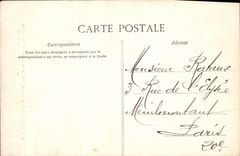 CARTE POSTALE
Correspondance
Tous les pays étrangers n'acceptent pas la
correspondance au verso, se renseigner à la Poste.
Adresse
Monsieur
3 Rue de l'Elysée
Menilmontant
Paris